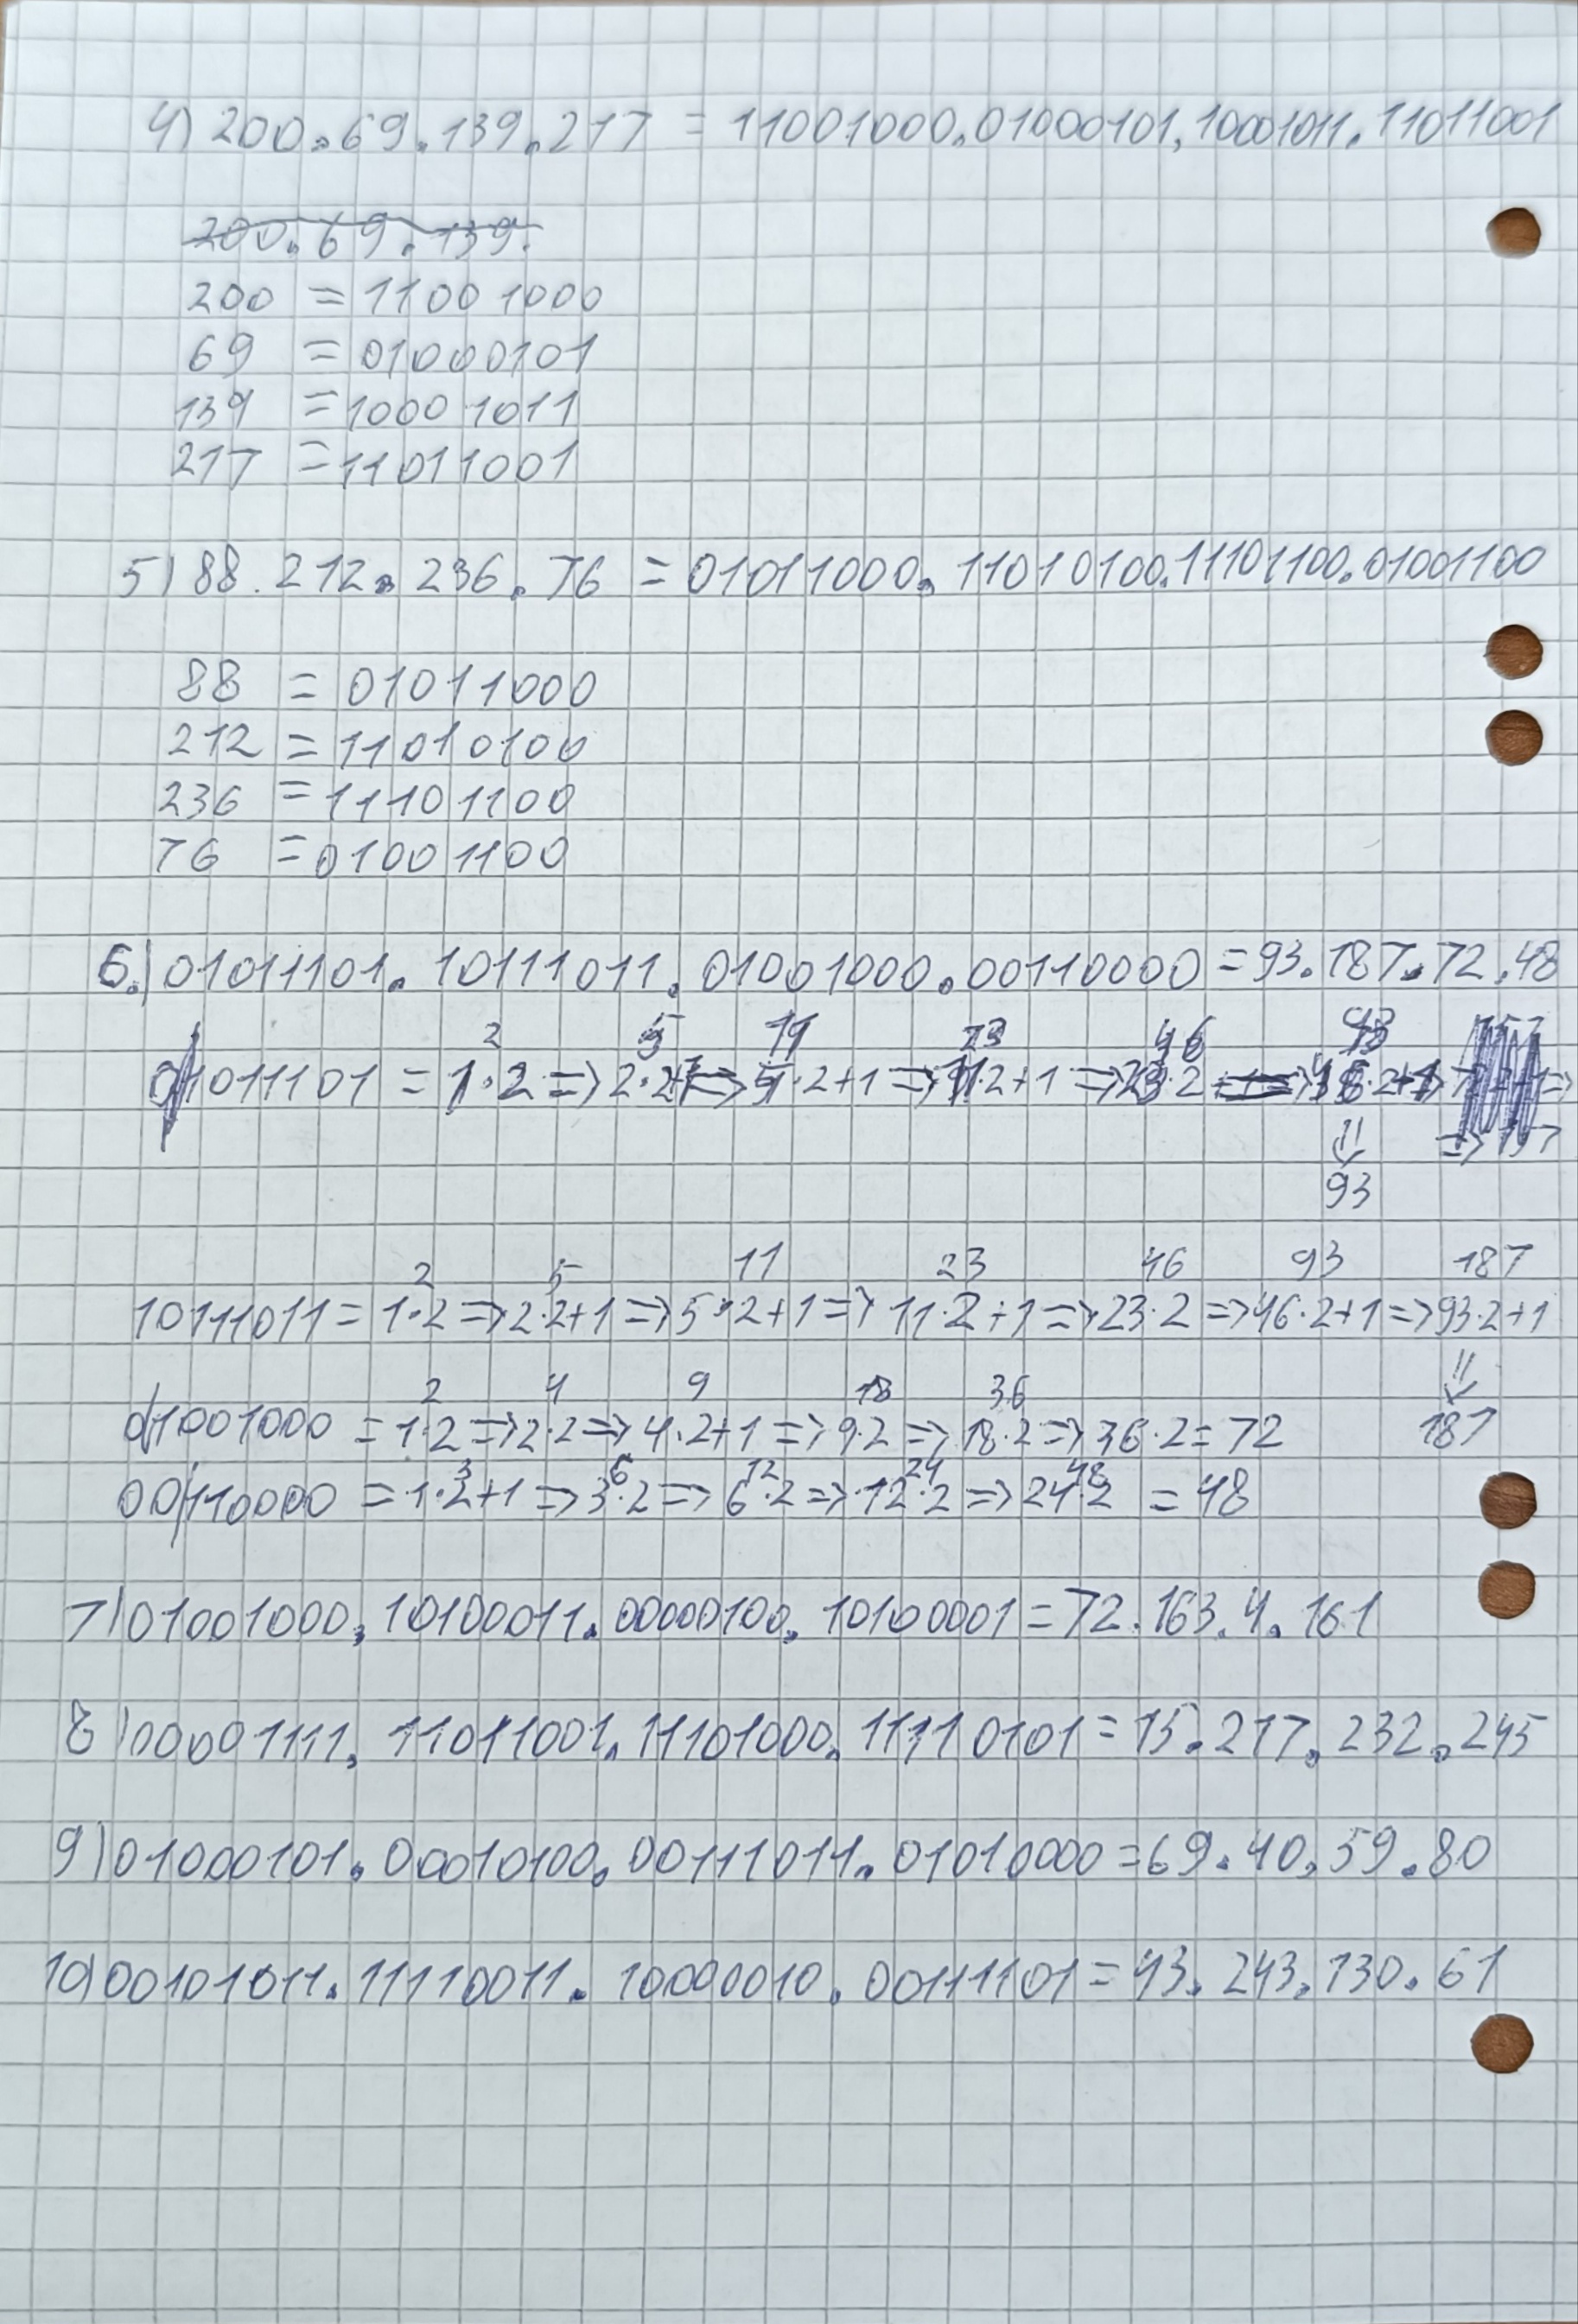 4) 200.69.139.217 = 11001000.01000101.10001011.11011001
200.69.139.
200 = 11001000
69 = 01000101
139 = 10001011
217 = 11011001
5) 88.212.236.76 = 01011000.11010100.11101100.01001100
88 = 01011000
212 = 11010100
236 = 11101100
76 = 01001100
6.) 01011101.10111011.01001000.00110000 = 93.187.72.48
2 5 11 23 46 93
01011101 = 1·2 => 2·2+1 => 5·2+1 => 11·2+1 => 23·2 => 46·2+1
=>
93
2 5 11 23 46 93 187
10111011 = 1·2 => 2·2+1 => 5·2+1 => 11·2+1 => 23·2 => 46·2+1 => 93·2+1
2 4 9 18 36
01001000 = 1·2 => 2·2 => 4·2+1 => 9·2 => 18·2 => 36·2 = 72
187
3 6 12 24 48
00110000 = 1·2+1 => 3·2 => 6·2 => 12·2 => 24·2 = 48
7) 01001000.10100011.00000100.10100001 = 72.163.4.161
8) 00001111.11011001.11101000.11110101 = 15.217.232.245
9) 01000101.00010100.00111011.01010000 = 69.40.59.80
10) 00101011.11110011.10000010.00111101 = 43.243.130.61